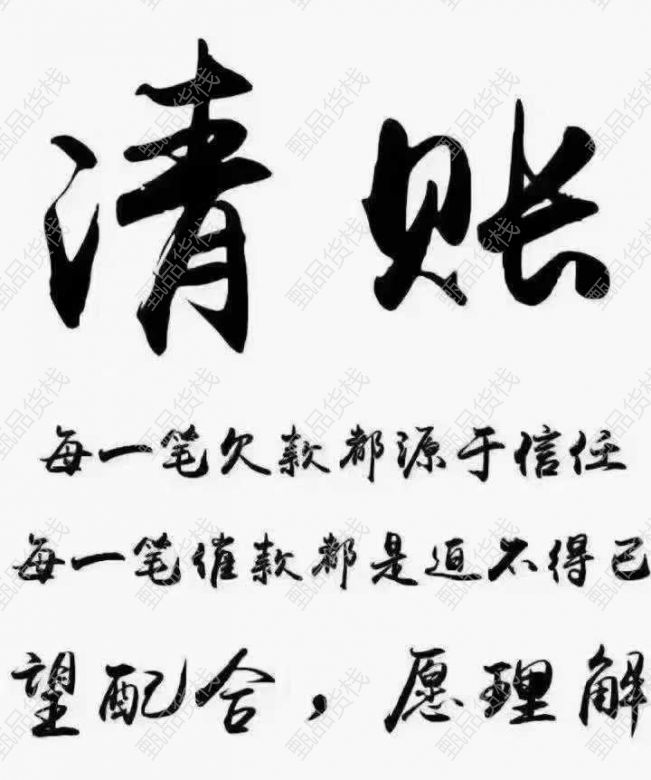 清账
每一笔欠款都源于信任
每一笔催款都是迫不得已
望配合，愿理解
甄品货栈